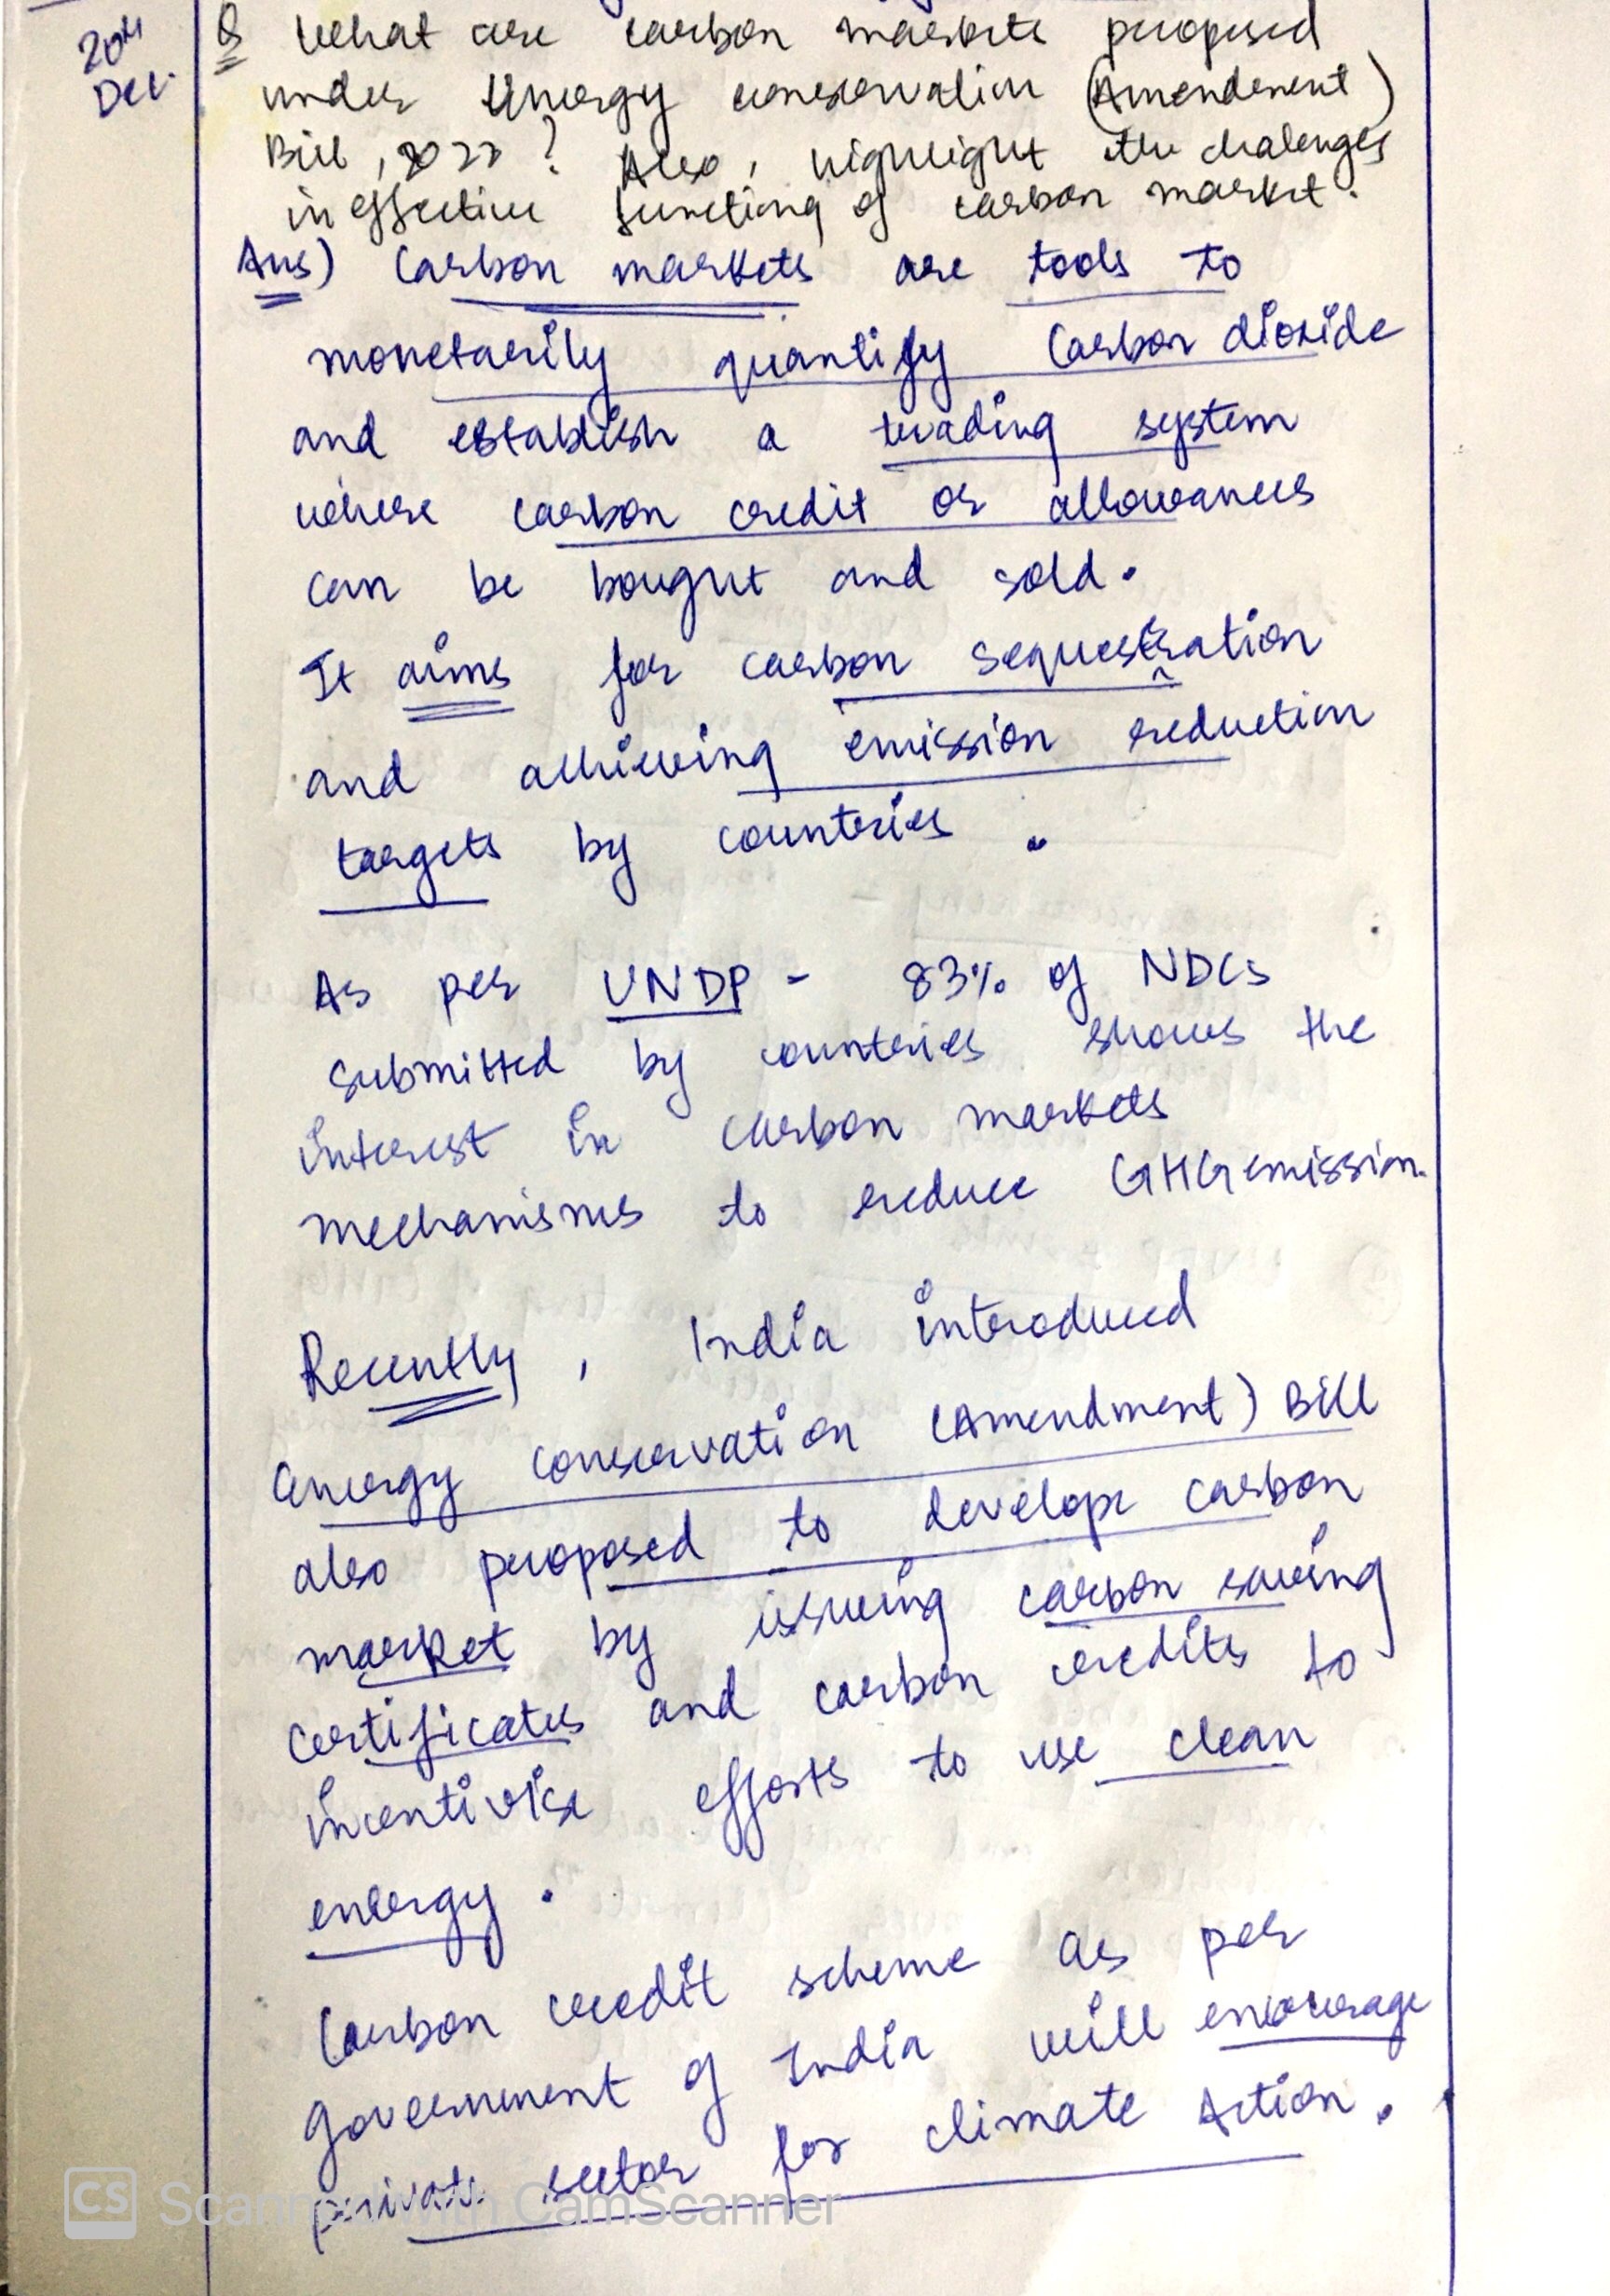 20th
Dec.
Q What are carbon markets proposed
under Energy conservation (Amendment)
Bill, 2022? Also, highlight the chalenges
in effective functiong of carbon market.
Ans) Carbon markets are tools to
monetarily quantify Carbon dioxide
and establish a trading system
where carbon credit or allowances
can be bought and sold.
It aims for carbon sequestration
and achieving emission reduction
targets by countries.
As per UNDP - 83% of NDCs
submitted by countries shows the
interest in carbon markets
mechanisms to reduce GHG emission.
Recently, India introduced
energy conservation (Amendment) Bill
also proposed to develope carbon
market by issueing carbon saving
certificates and carbon credits to
incentivise efforts to use clean
energy.
Carbon credit scheme as per
government of India will encourage
private sector for climate Action.
CS Scanned with CamScanner